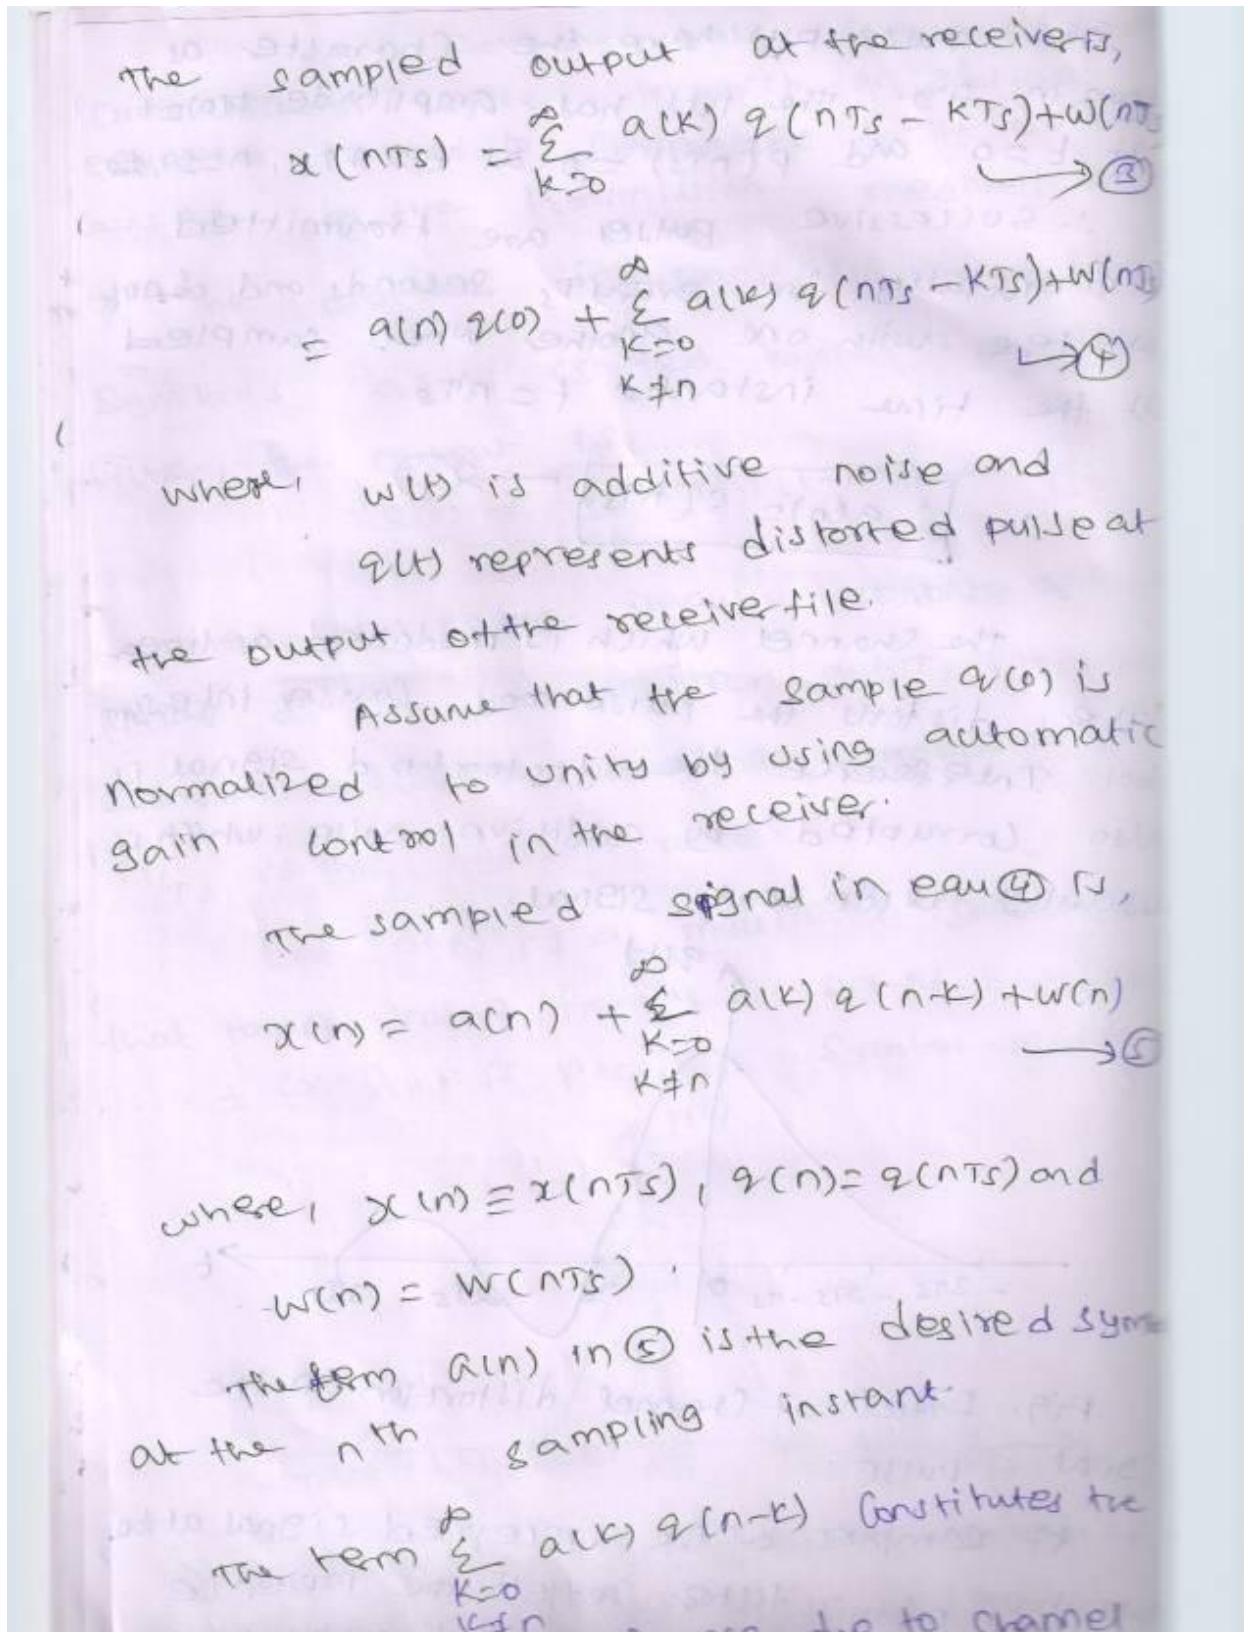 The sampled output at the receiver is,
x(nTs) = ∞ Σ k=0 a(k) q(nTs - kTs) + w(nTs
→ ③
= a(n) q(0) + ∞ Σ k=0 k≠n a(k) q(nTs - kTs) + w(nTs
→ ④
where, w(t) is additive noise and
q(t) represents distorted pulse at
the output of the receiver file.
Assume that the sample q(0) is
normalized to unity by using automatic
gain control in the receiver.
The sampled signal in equ ④ is,
x(n) = a(n) + ∞ Σ k=0 k≠n a(k) q(n-k) + w(n)
→ ⑤
where, x(n) ≡ x(nTs), q(n) = q(nTs) and
w(n) = w(nTs).
The term a(n) in ⑤ is the desired sym
at the nth sampling instant.
The term ∞ Σ k=0 k≠n a(k) q(n-k) constitutes the
due to channel